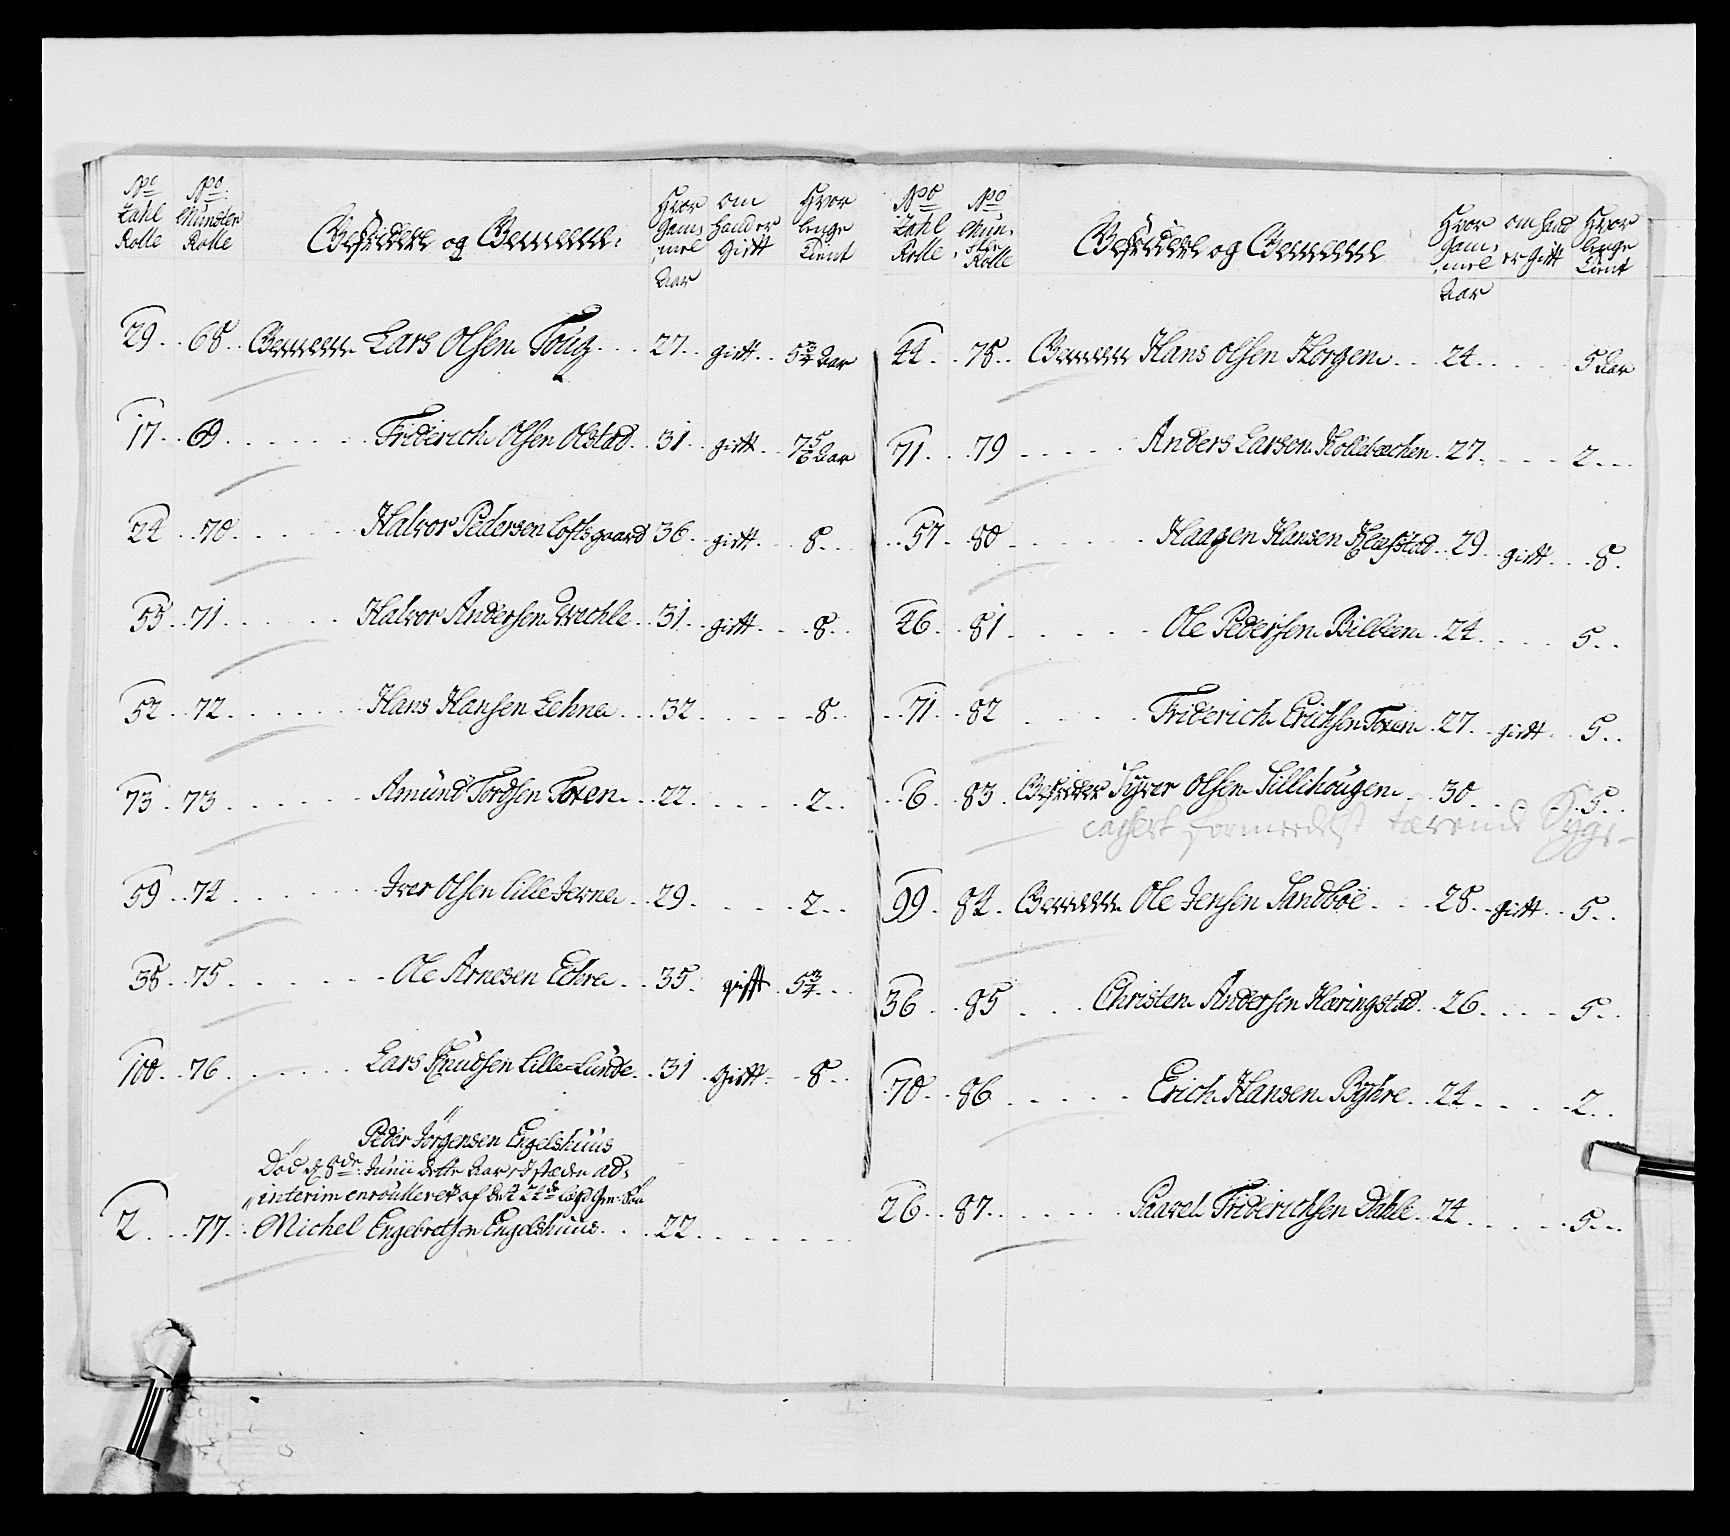 No Zahl Rolle
No Münster Rolle
Befridere og Gemeene:
Hvor Gam, mel Aar
om hand er Gift
Hvor lenge Tient
29 68 Gemeen Lars Olsen Toug 27 gift 5 3/4 Aar
17 69 Friderich Olsen Olstad 31 gift 7 5/6 Aar
24 70 Halvor Pedersen Loftsgaard 36 gift 8
55 71 Halvor Andersen 31 gift 8
52 72 Hans Hansen Lehne 32 8
73 73 Amund Tordsen Toxen 22 2
59 74 Iver Olsen Lille Ierne 29 2
38 75 Ole Arnesen 35 gifft 5 3/4
100 76 Lars Knudsen Lille-Lunde 31 Gift 8
Peder Jörgensen Engelshuus
Död d 8de Junii dette Aar, i stæden ad-
interim enroulleret af det 22de Lægd
2 77 Michel Engebretsen Engelshuus 22
No Zahl Rolle
No Mün, ster Rolle
Befridere og Gemeene
Hvor Gam, mel Aar
om hand er Gift
Hvor lenge Tient
44 78 Gemeen Hans Olsen Horgen 24 5 Aar
71 79 Anders Larsen Kollebechen 27 2
57 80 Haagen Hansen Klæfstad 29 gift 8
46 81 Ole Pedersen Bilben 24 5
71 82 Friderich Erichsen Toxen 27 gift 5
6 83 Befrider Syver Olsen Sillihougen 30 5
casert formedelst tærende Syge-
99 84 Gemeen Ole Jensen Sandböe 28 gift 5
36 85 Christen Andersen Haringstad 26 5
70 86 Erich Hansen Byhre 24 2
26 87 Paavel Friderichsen Dahle 24 5